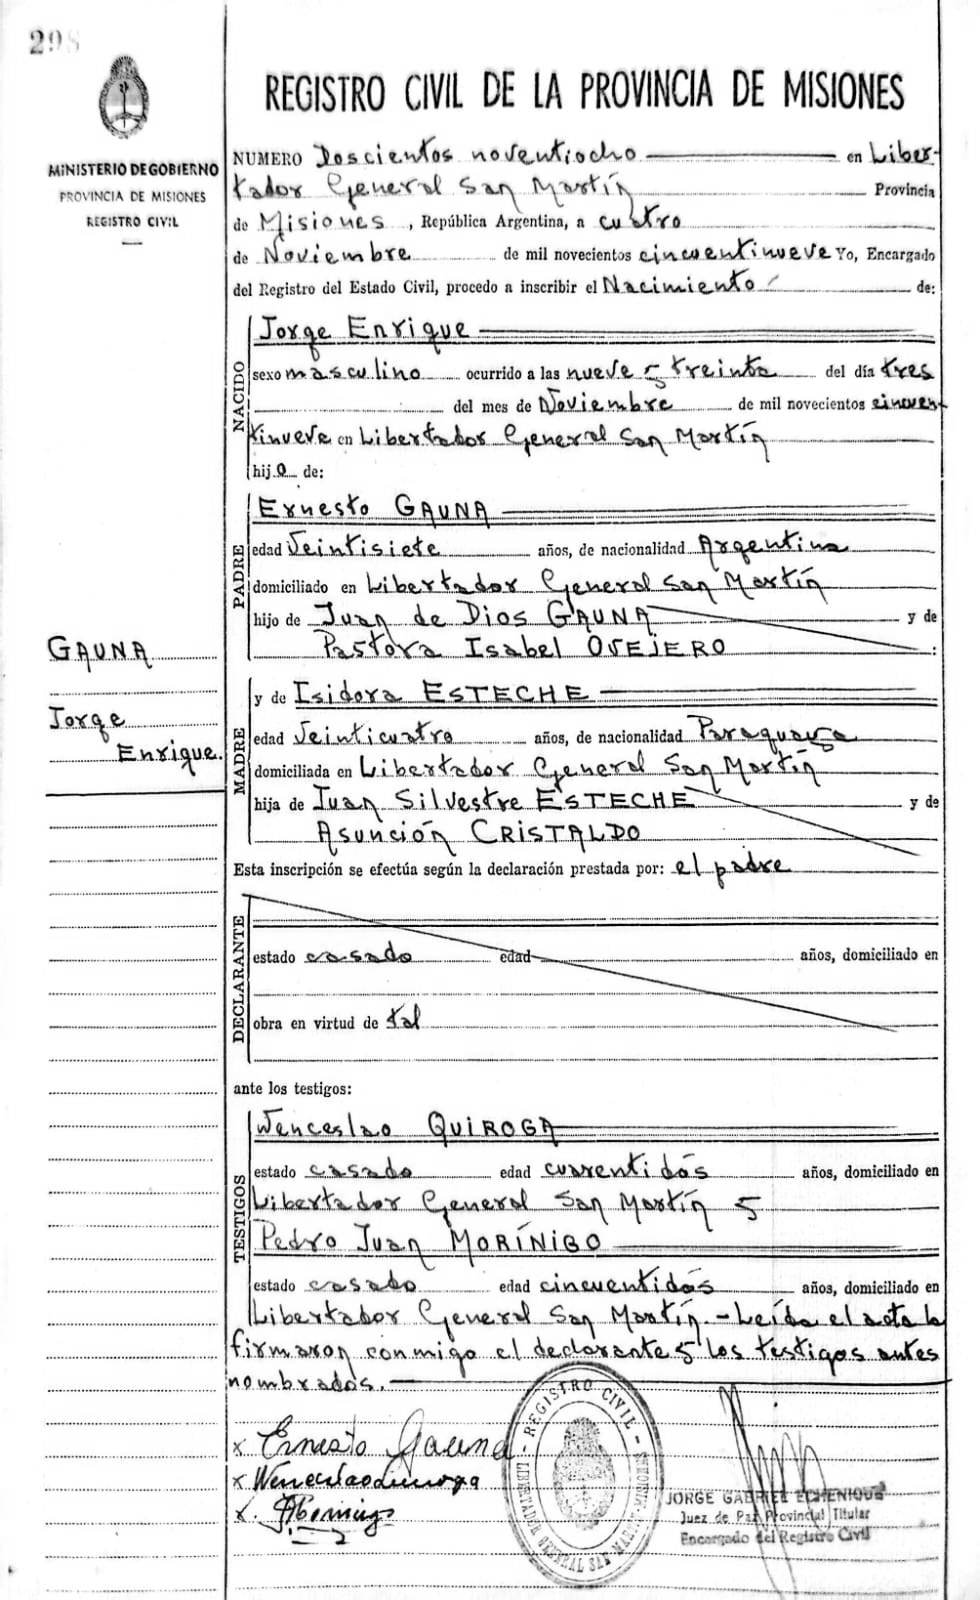 298
MINISTERIO DE GOBIERNO
PROVINCIA DE MISIONES
REGISTRO CIVIL
REGISTRO CIVIL DE LA PROVINCIA DE MISIONES
NUMERO Doscientos noventiocho en Liber-
tador General San Martín Provincia
de Misiones, República Argentina, a cuatro
de Noviembre de mil novecientos cincuentinueve Yo, Encargado
del Registro del Estado Civil, procedo a inscribir el Nacimiento de:
NACIDO
Jorge Enrique
sexo masculino ocurrido a las nueve y treinta del día tres
del mes de Noviembre de mil novecientos cincuen
tinueve en Libertador General San Martín
hijo de:
PADRE
Ernesto GAUNA
edad Veintisiete años, de nacionalidad Argentina
domiciliado en Libertador General San Martín
hijo de Juan de Dios GAUNA y de
Pastora Isabel OVEJERO :
GAUNA
Jorge
Enrique.
MADRE
y de Isidora ESTECHE
edad Veinticuatro años, de nacionalidad Paraguaya
domiciliada en Libertador General San Martín
hija de Juan Silvestre ESTECHE y de
Asunción CRISTALDO
Esta inscripción se efectúa según la declaración prestada por: el padre
DECLARANTE
estado casado edad años, domiciliado en
obra en virtud de tal
ante los testigos:
TESTIGOS
Wenceslao QUIROGA
estado casado edad cuarentidós años, domiciliado en
Libertador General San Martín y
Pedro Juan MORÍNIGO
estado casado edad cincuentidós años, domiciliado en
Libertador General San Martín.-Leída el acta la
firmaron conmigo el declarante y los testigos antes
nombrados.
x Ernesto Gauna
x Wenceslao Quiroga
x.
REGISTRO CIVIL
LIBERTADOR GENERAL SAN MARTIN
JORGE GABRIEL ECHENIQUE
Juez de Paz Provincial Titular
Encargado del Registro Civil